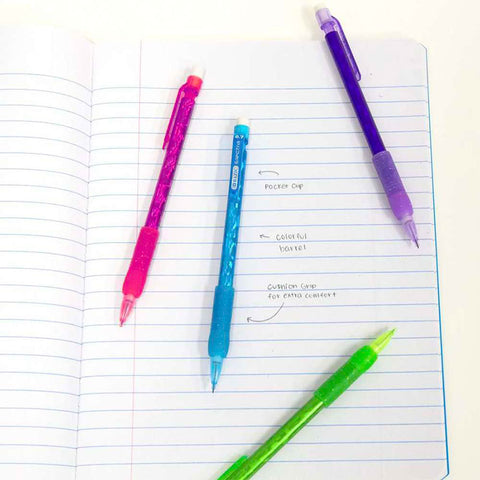 Pocket Clip
Colorful
barrel
Cushion Grip
for extra comfort